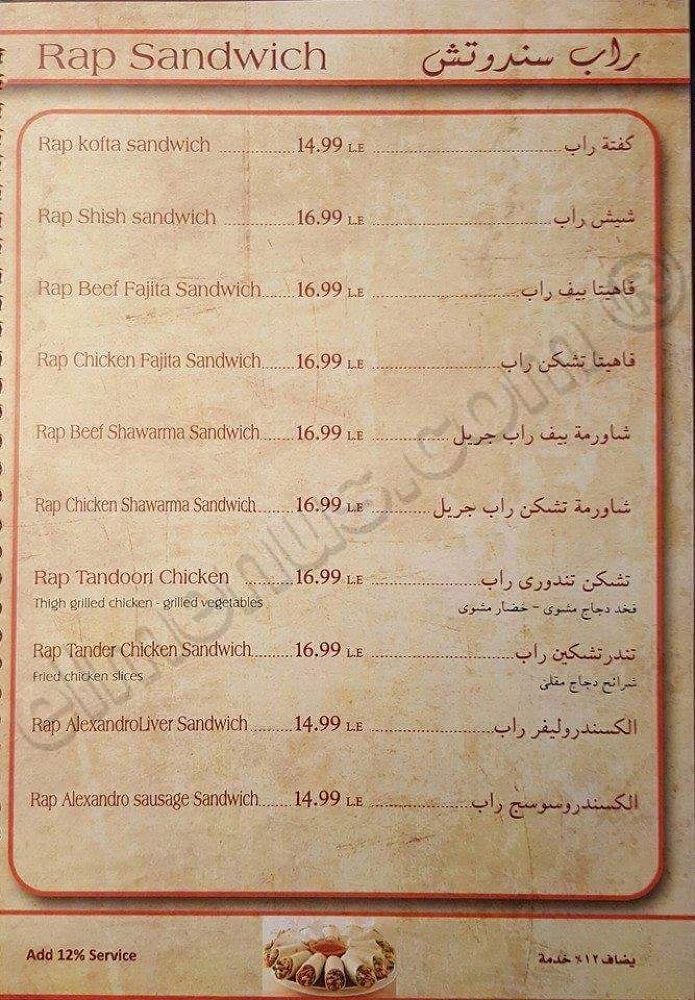 Rap Sandwich راب سندوتش
Rap kofta sandwich 14.99 L.E كفتة راب
Rap Shish sandwich 16.99 L.E شيش راب
Rap Beef Fajita Sandwich 16.99 L.E فاهيتا بيف راب
Rap Chicken Fajita Sandwich 16.99 L.E فاهيتا تشكن راب
Rap Beef Shawarma Sandwich 16.99 L.E شاورمة بيف راب جريل
Rap Chicken Shawarma Sandwich 16.99 L.E شاورمة تشكن راب جريل
Rap Tandoori Chicken 16.99 L.E تشكن تندورى راب
Thigh grilled chicken - grilled vegetables فخد دجاج مشوى - خضار مشوى
Rap Tander Chicken Sandwich 16.99 L.E تندر تشكين راب
Fried chicken slices شرائح دجاج مقلى
Rap AlexandroLiver Sandwich 14.99 L.E الكسندروليفر راب
Rap Alexandro sausage Sandwich 14.99 L.E الكسندروسوسج راب
Add 12% Service يضاف ١٢٪ خدمة
elmenus.com ®